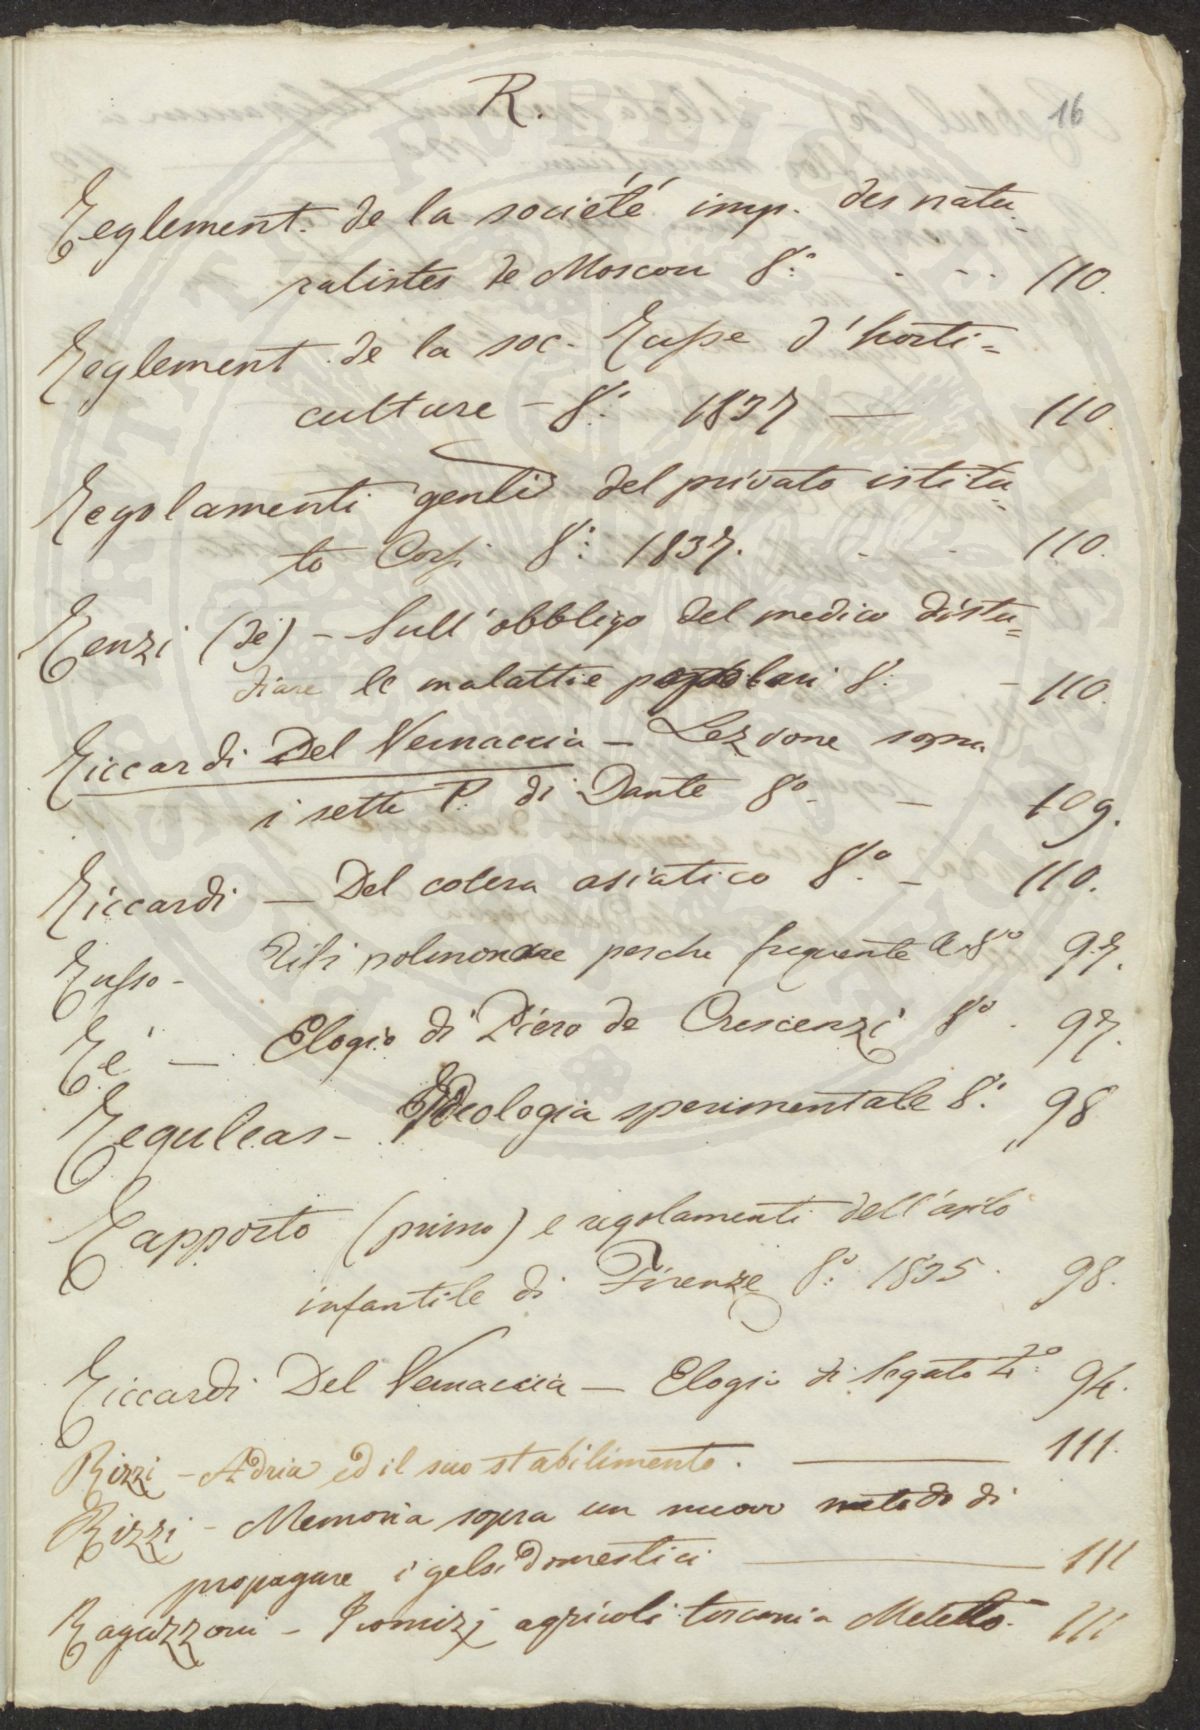 R.
16
Reglement. de la societé imp. des natu-
ralistes de Moscou 8.° 110.
Reglement de la soc. Russe d'horti=
culture - 8.° 1837 — 110.
Regolamenti genli del privato istitu-
to 8.° 1837. 110.
Renzi (de) - Sull'obbligo del medico di stu=
diare le malattie popolari 8. - 110.
Riccardi Del Vernaccia - Lezione sopra
i sette P. di Dante 8.° - 109.
Riccardi — Del colera asiatico 8.° - 110.
Russo - Tisi polmonare perche frequente a 8° 97.
Ré — Elogio di Piero de Crescenzi 8° 97.
Reguleas - Ideologia sperimentale 8.° 98
Rapporto (primo) e regolamenti dell'asilo
infantile di Firenze 8.° 1835. 98.
Riccardi Del Vernaccia - Elogio di Segato 94.
Rizzi - Adria ed il suo stabilimento. — 111.
Rizzi - Memoria sopra un nuovo metodo di
propagare i gelsi domestici — 111
Ragazzoni - agricoli 111